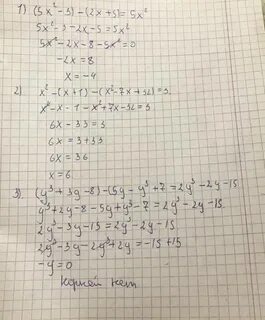 1) (5x² - 3) - (2x + 5) = 5x²
5x² - 3 - 2x - 5 = 5x²
5x² - 2x - 8 - 5x² = 0
-2x = 8
x = -4
2) x² - (x + 1) - (x² - 7x + 32) = 3
x² - x - 1 - x² + 7x - 32 = 3
6x - 33 = 3
6x = 3 + 33
6x = 36
x = 6
3) (y³ + 3y - 8) - (5y - y³ + 7) = 2y³ - 2y - 15
y³ + 2y - 8 - 5y + y³ - 7 = 2y³ - 2y - 15
2y³ - 3y - 15 = 2y³ - 2y - 15
2y³ - 3y - 2y³ + 2y = -15 + 15
-y = 0
Корней нет